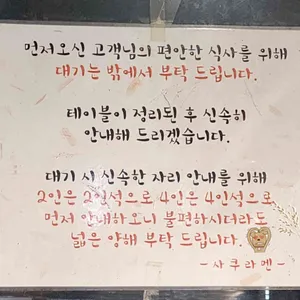 먼저오신 고객님의 편안한 식사를 위해
대기는 밖에서 부탁 드립니다.
테이블이 정리된 후 신속히
안내해 드리겠습니다.
대기 시 신속한 자리 안내를 위해
2인은 2인석으로 4인은 4인석으로
먼저 안내하오니 불편하시더라도
넓은 양해 부탁 드립니다.
- 사쿠라멘 -